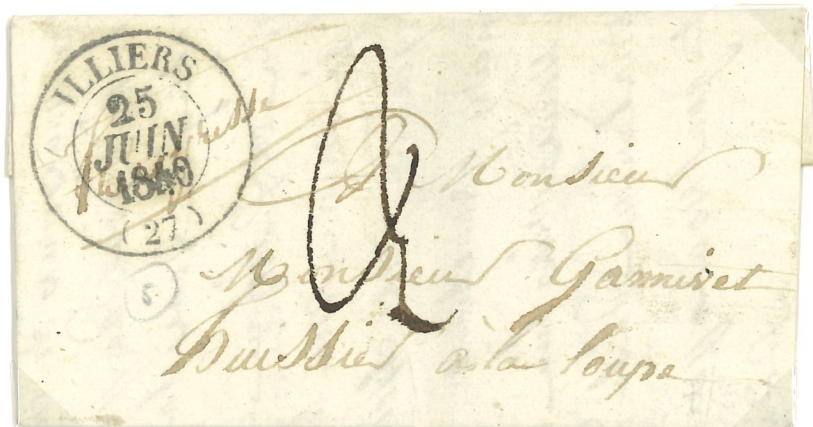 ILLIERS
25
JUIN
1840
(27)
2
A Monsieur
Monsieur Gannivet
huissier à la Loupe
S